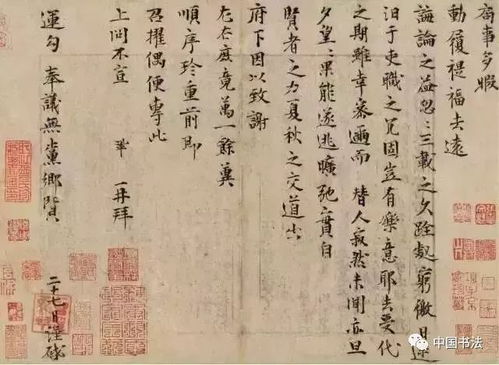 局事多暇
動履禔福去遠
誨論之益忽〻三載之久跧處窮徼日迷
汩于吏職之冗固豈有樂意耶去受代
之期雖幸密邇而替人寂然未聞亦旦
夕望〻果能遂逃曠弛實自
賢者之力夏秋之交道出
府下因以致謝
左右庶竟萬一餘冀
順序珍重前即
召擢偶便專此
上問不宣 鞏 再拜
運勾奉議無黨鄉賢 二十七日謹啓
中国书法